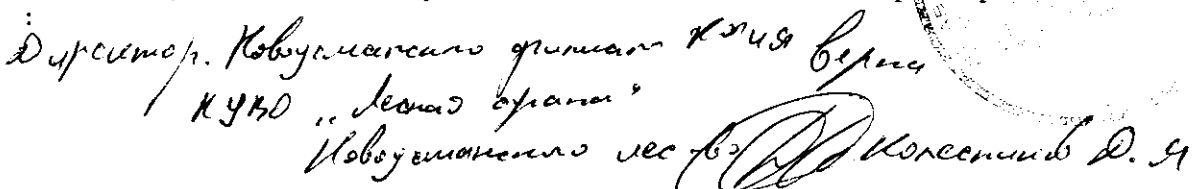 Директор. Новоусманского филиала копия верна
КУВО „Лесная охрана"
Новоусманского лес-во Колесников Д. Я